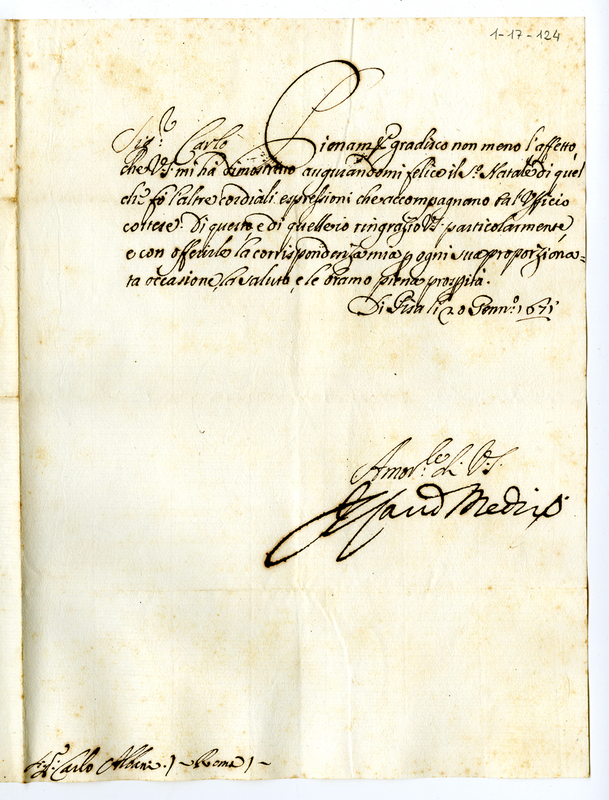 1-17-124
Sig.r Carlo Pienam.te gradisco non meno l'affetto,
che V.S. mi hà dimostrato augurandomi felice il S.o Natale di quel
che fò l'altre cordiali espressioni che accompagnano tal Uffizio
cortese. Di questo e di quelle io ringrazio V.S. particolarmente,
e con offerirle la corrispondenza mia p ogni sua proporziona=
ta occasione, la saluto, e le bramo piena prosp.ità.
Di Pisa li 20 Genn.o 1671
Amor.le di V.S.
Il Card Medici
S.r Carlo Albani Roma